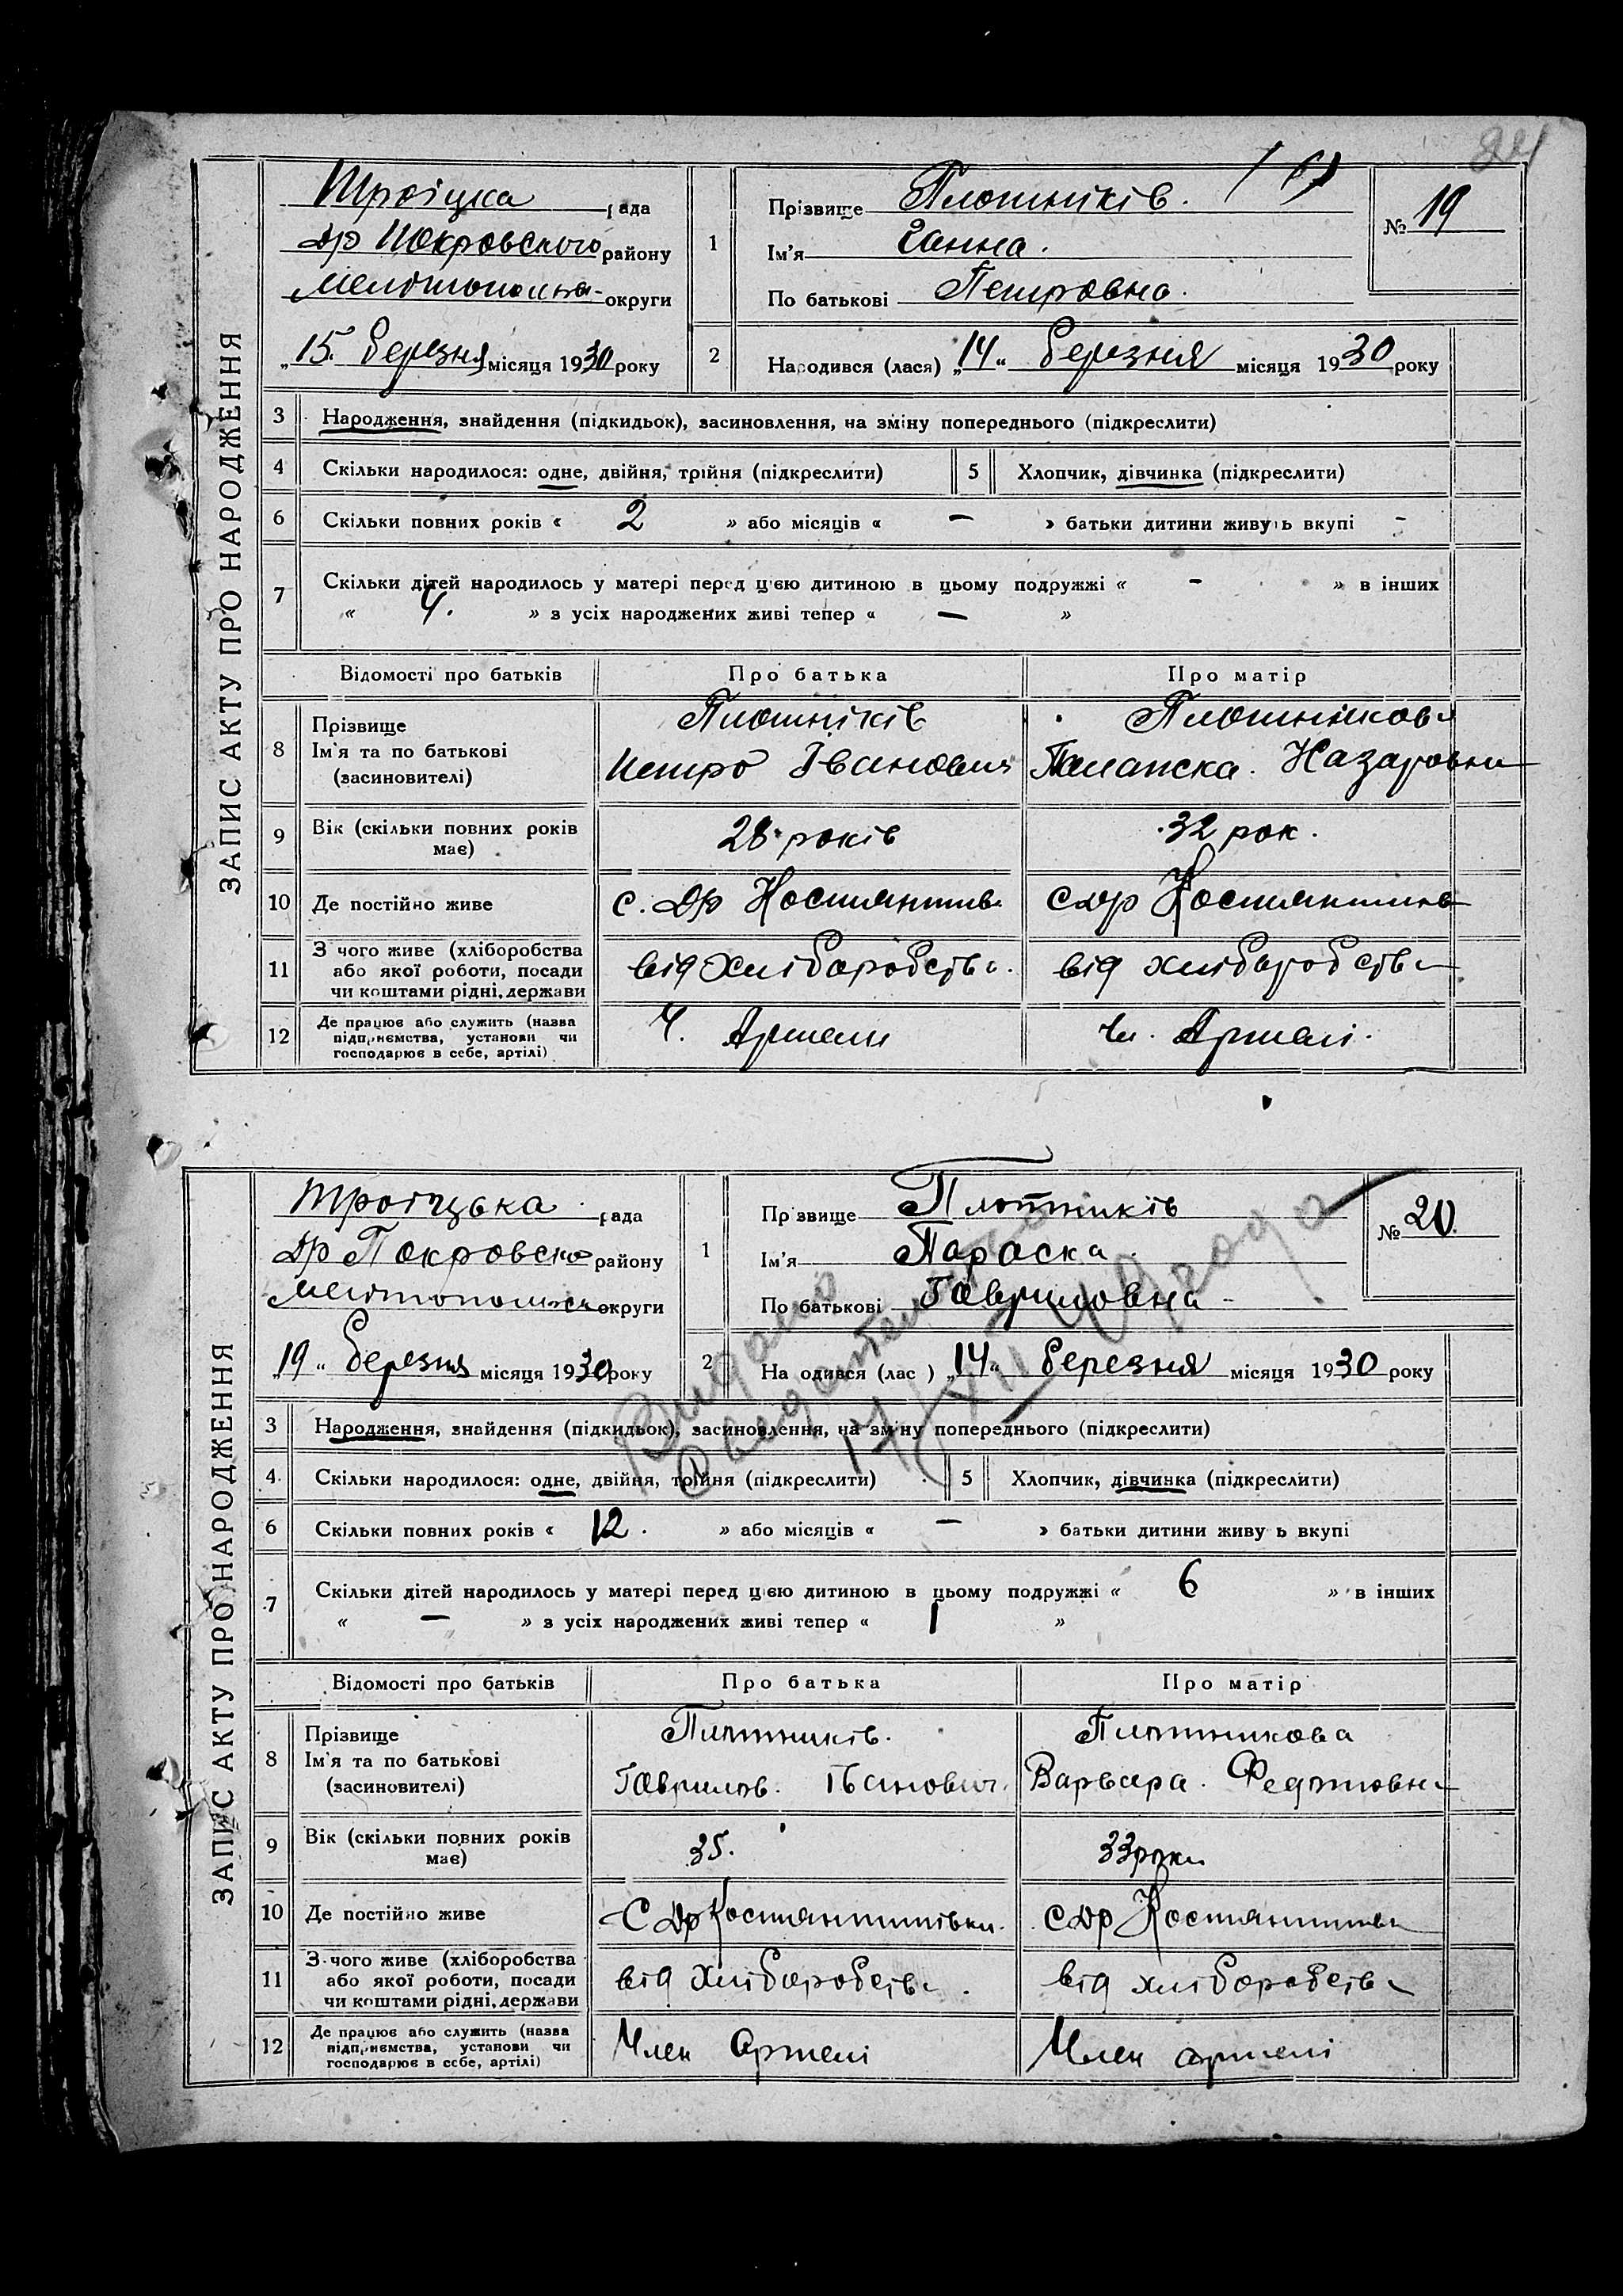 84
ЗАПИС АКТУ ПРО НАРОДЖЕННЯ
Троіцка рада
Др Покровского району
Мелітополь округи
„15" березня місяця 1930 року
1
Прізвище Плотніків.
Ім'я Ганна.
По батькові Петровна.
№ 19
2
Народився (лася) „14" березня місяця 1930 року
3 Народження, знайдення (підкидьок), засиновлення, на зміну попереднього (підкреслити)
4 Скільки народилося: одне, двійня, трійня (підкреслити) 5 Хлопчик, дівчинка (підкреслити)
6 Скільки повних років « 2 » або місяців « – » батьки дитини живуть вкупі –
7 Скільки дітей народилось у матері перед цією дитиною в цьому подружжі « – » в інших
« 4. » з усіх народжених живі тепер « — »
Відомості про батьків Про батька Про матір
8 Прізвище Плотніків Плотнікова
Ім'я та по батькові Петро Іванович Палашка. Назаровна
(засиновителі)
9 Вік (скільки повних років має) 28 років 32 рок.
10 Де постійно живе с. Др Костянтив. с Др Костянтинів
11 З чого живе (хліборобства або якої роботи, посади чи коштами рідні, держави від хліборобства. від хліборобства
12 Де працює або служить (назва підприємства, установи чи господарює в себе, артілі) Ч. Артели Чл. Артелі.
ЗАПИС АКТУ ПРО НАРОДЖЕННЯ
Троіцька рада
Др Покровско району
Мелітопольск округи
„19" березня місяця 1930 року
1
Прізвище Плотників
Ім'я Параска
По батькові Гавриловна
№ 20.
2
На одився (лас ) „14" березня місяця 1930 року
Видано
17/XII года
3 Народження, знайдення (підкидьок), засиновлення, на зміну попереднього (підкреслити)
4. Скільки народилося: одне, двійня, трійня (підкреслити) 5 Хлопчик, дівчинка (підкреслити)
6 Скільки повних років « 12. » або місяців « – » батьки дитини живу ь вкупі
7 Скільки дітей народилось у матері перед цією дитиною в цьому подружжі « 6 » в інших
« — » з усіх народжених живі тепер « 1 »
Відомості про батьків Про батька Про матір
8 Прізвище Плотників. Плотникова
Ім'я та по батькові Гаврилов. Іванович. Варвара. Федотовна
(засиновителі)
9 Вік (скільки повних років має) 35. 33 роки
10 Де постійно живе С Др Костянтинівки. с Др Костянтинівки
11 З чого живе (хліборобства або якої роботи, посади чи коштами рідні, держави від хліборобства. від хліборобства
12 Де працює або служить (назва підприємства, установи чи господарює в себе, артілі) Член Артелі Член артелі